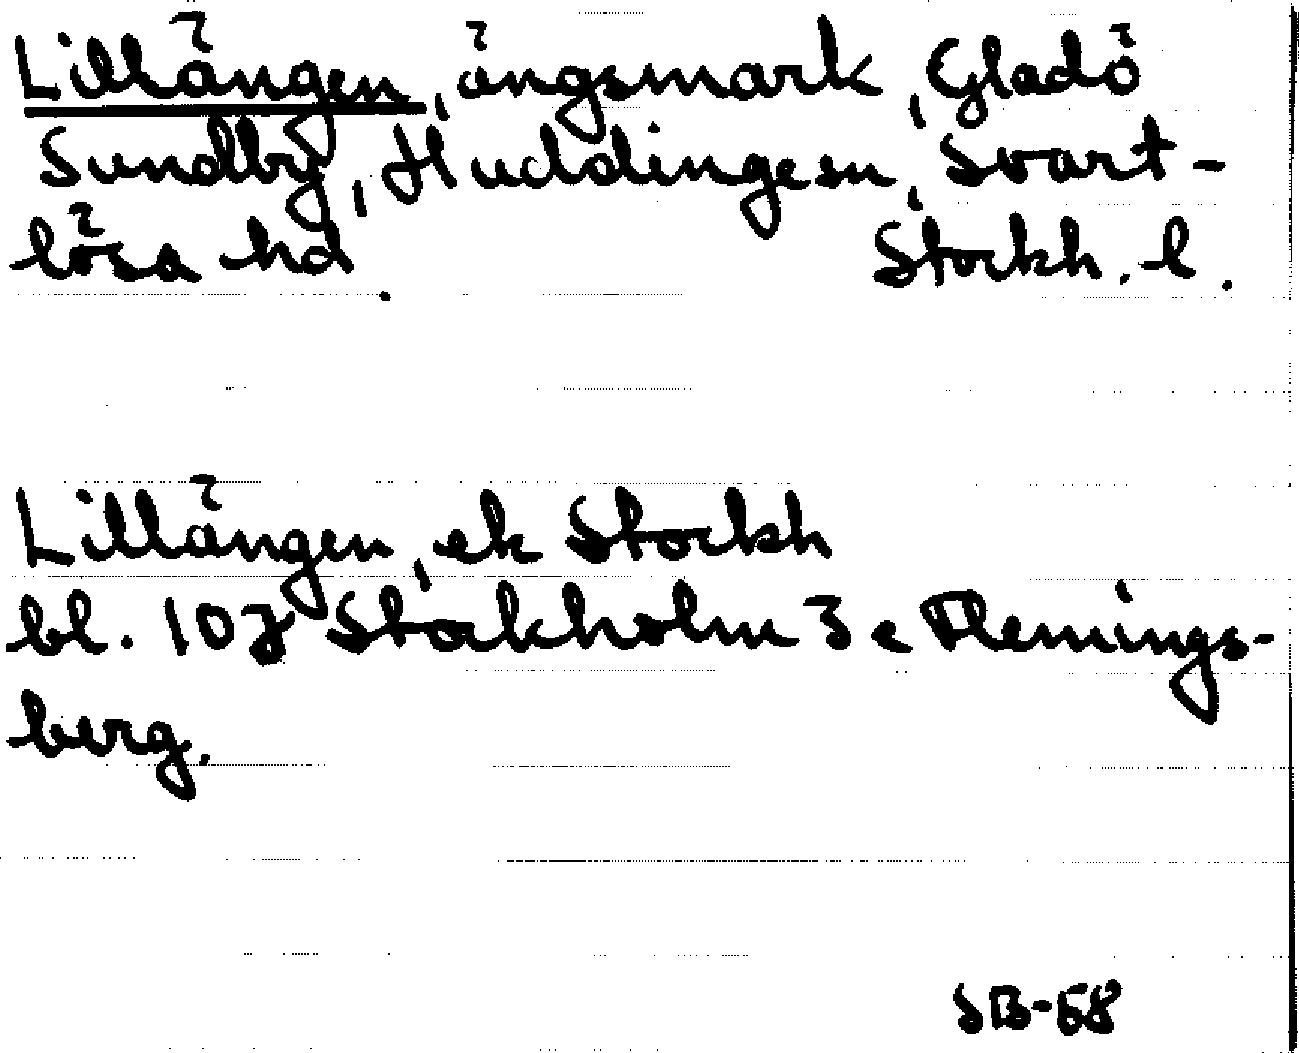 Lillängen, ängsmark, Gladö
Sundby, Huddinge sn, Svart-
lösa hd. Stockh. l.
Lillängen, ek Stockh
bl. 107 Stockholm 3 e Flemings-
berg.
SB-68